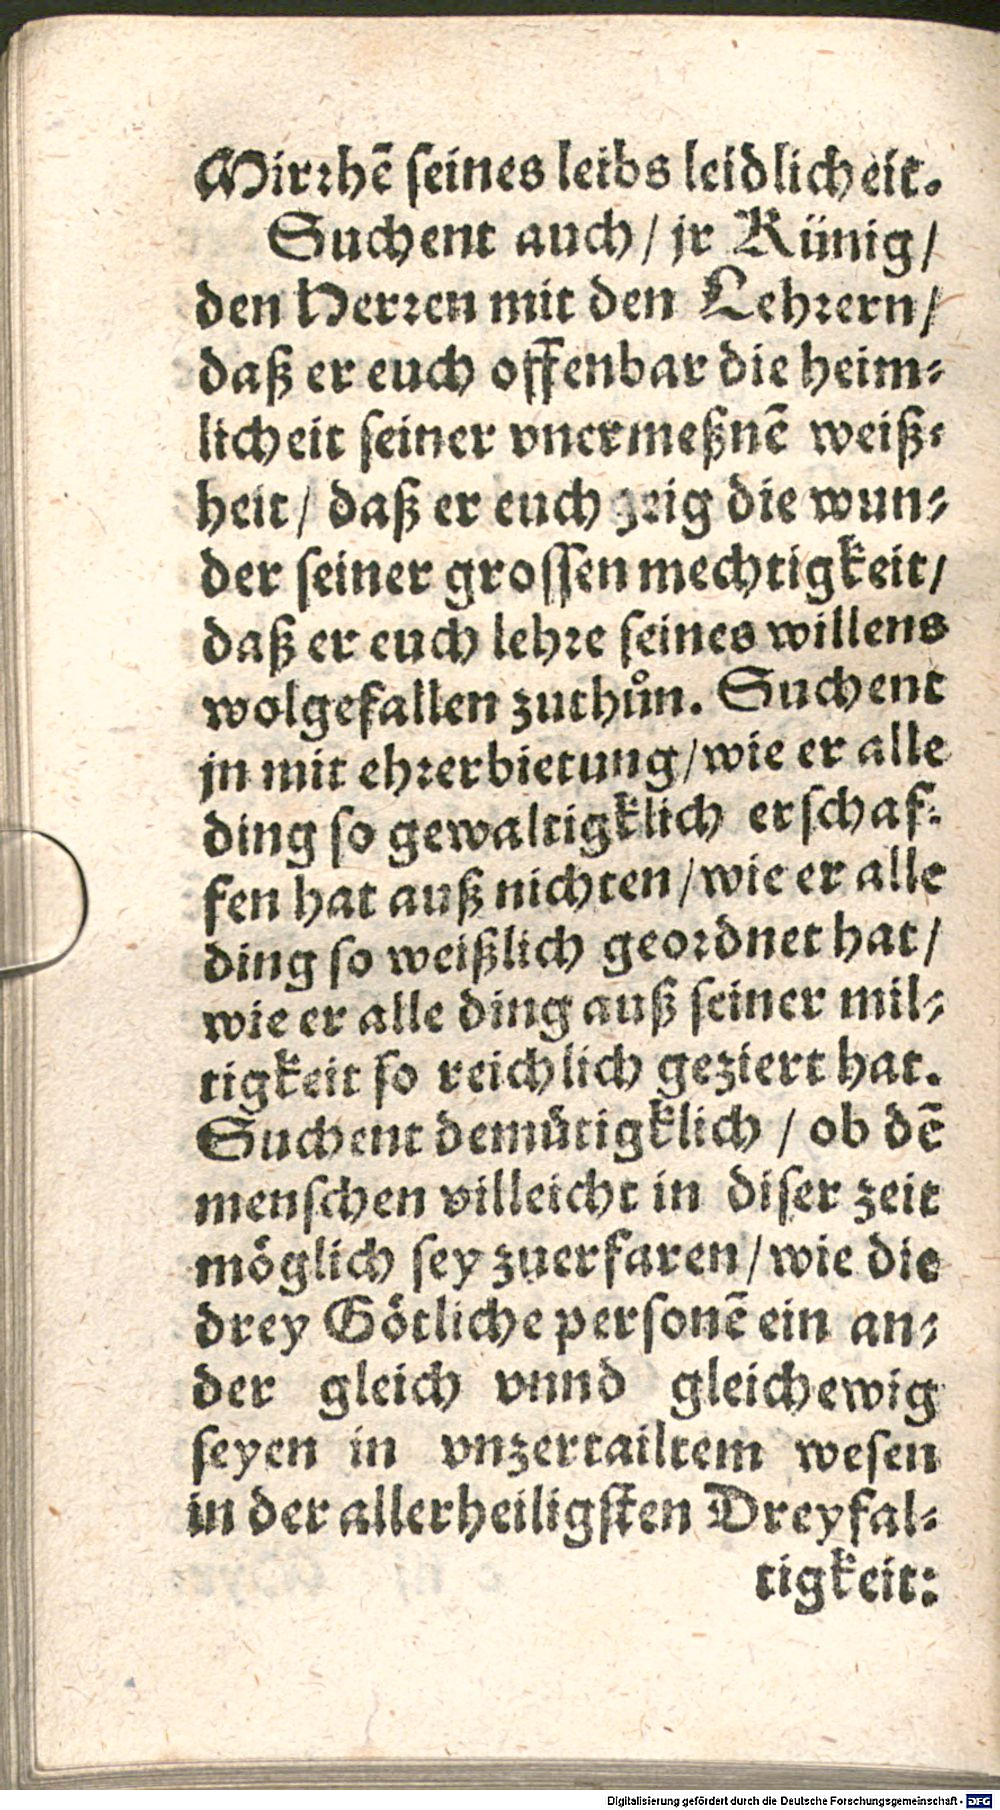 Mirꝛhē ſeines leibs leidlicheit.
Suchent auch / jr Künig /
den Herꝛen mit den Lehꝛern /
daß er euch offenbar die heim⸗
licheit ſeiner vnermeßnē weiß⸗
heit / daß er euch zeig die wun⸗
der ſeiner groſſen mechtigkeit /
daß er euch lehꝛe ſeines willens
wolgefallen zuthůn. Suchent
jn mit ehꝛerbietung / wie er alle
ding ſo gewaltigklich erſchaf⸗
fen hat auß nichten / wie er alle
ding ſo weißlich geoꝛdnet hat /
wie er alle ding auß ſeiner mil⸗
tigkeit ſo reichlich geziert hat.
Suchent demütigklich / ob dē
menſchen villeicht in diſer zeit
möglich ſey zuerfaren / wie die
drey Götliche perſonē ein an⸗
der gleich vnnd gleichewig
ſeyen in vnzertailtem weſen
in der allerheiligſten Dreyfal⸗
tigkeit:
Digitalisierung gefördert durch die Deutsche Forschungsgemeinschaft - DFG